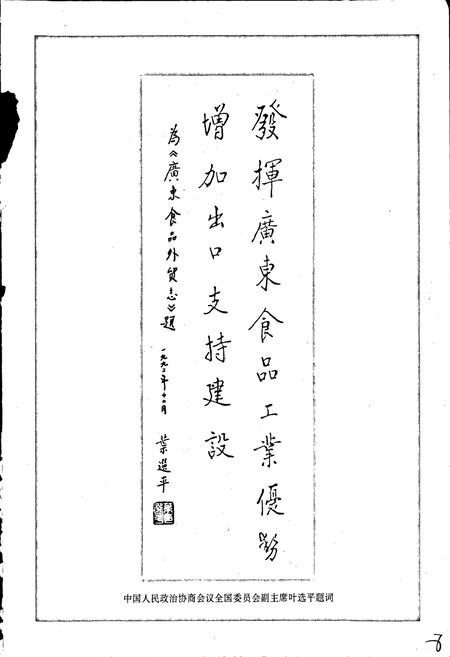 發揮廣東食品工業優勢
增加出口支持建設
為《廣東食品外貿志》題
一九九二年十二月
葉選平
中国人民政治协商会议全国委员会副主席叶选平题词